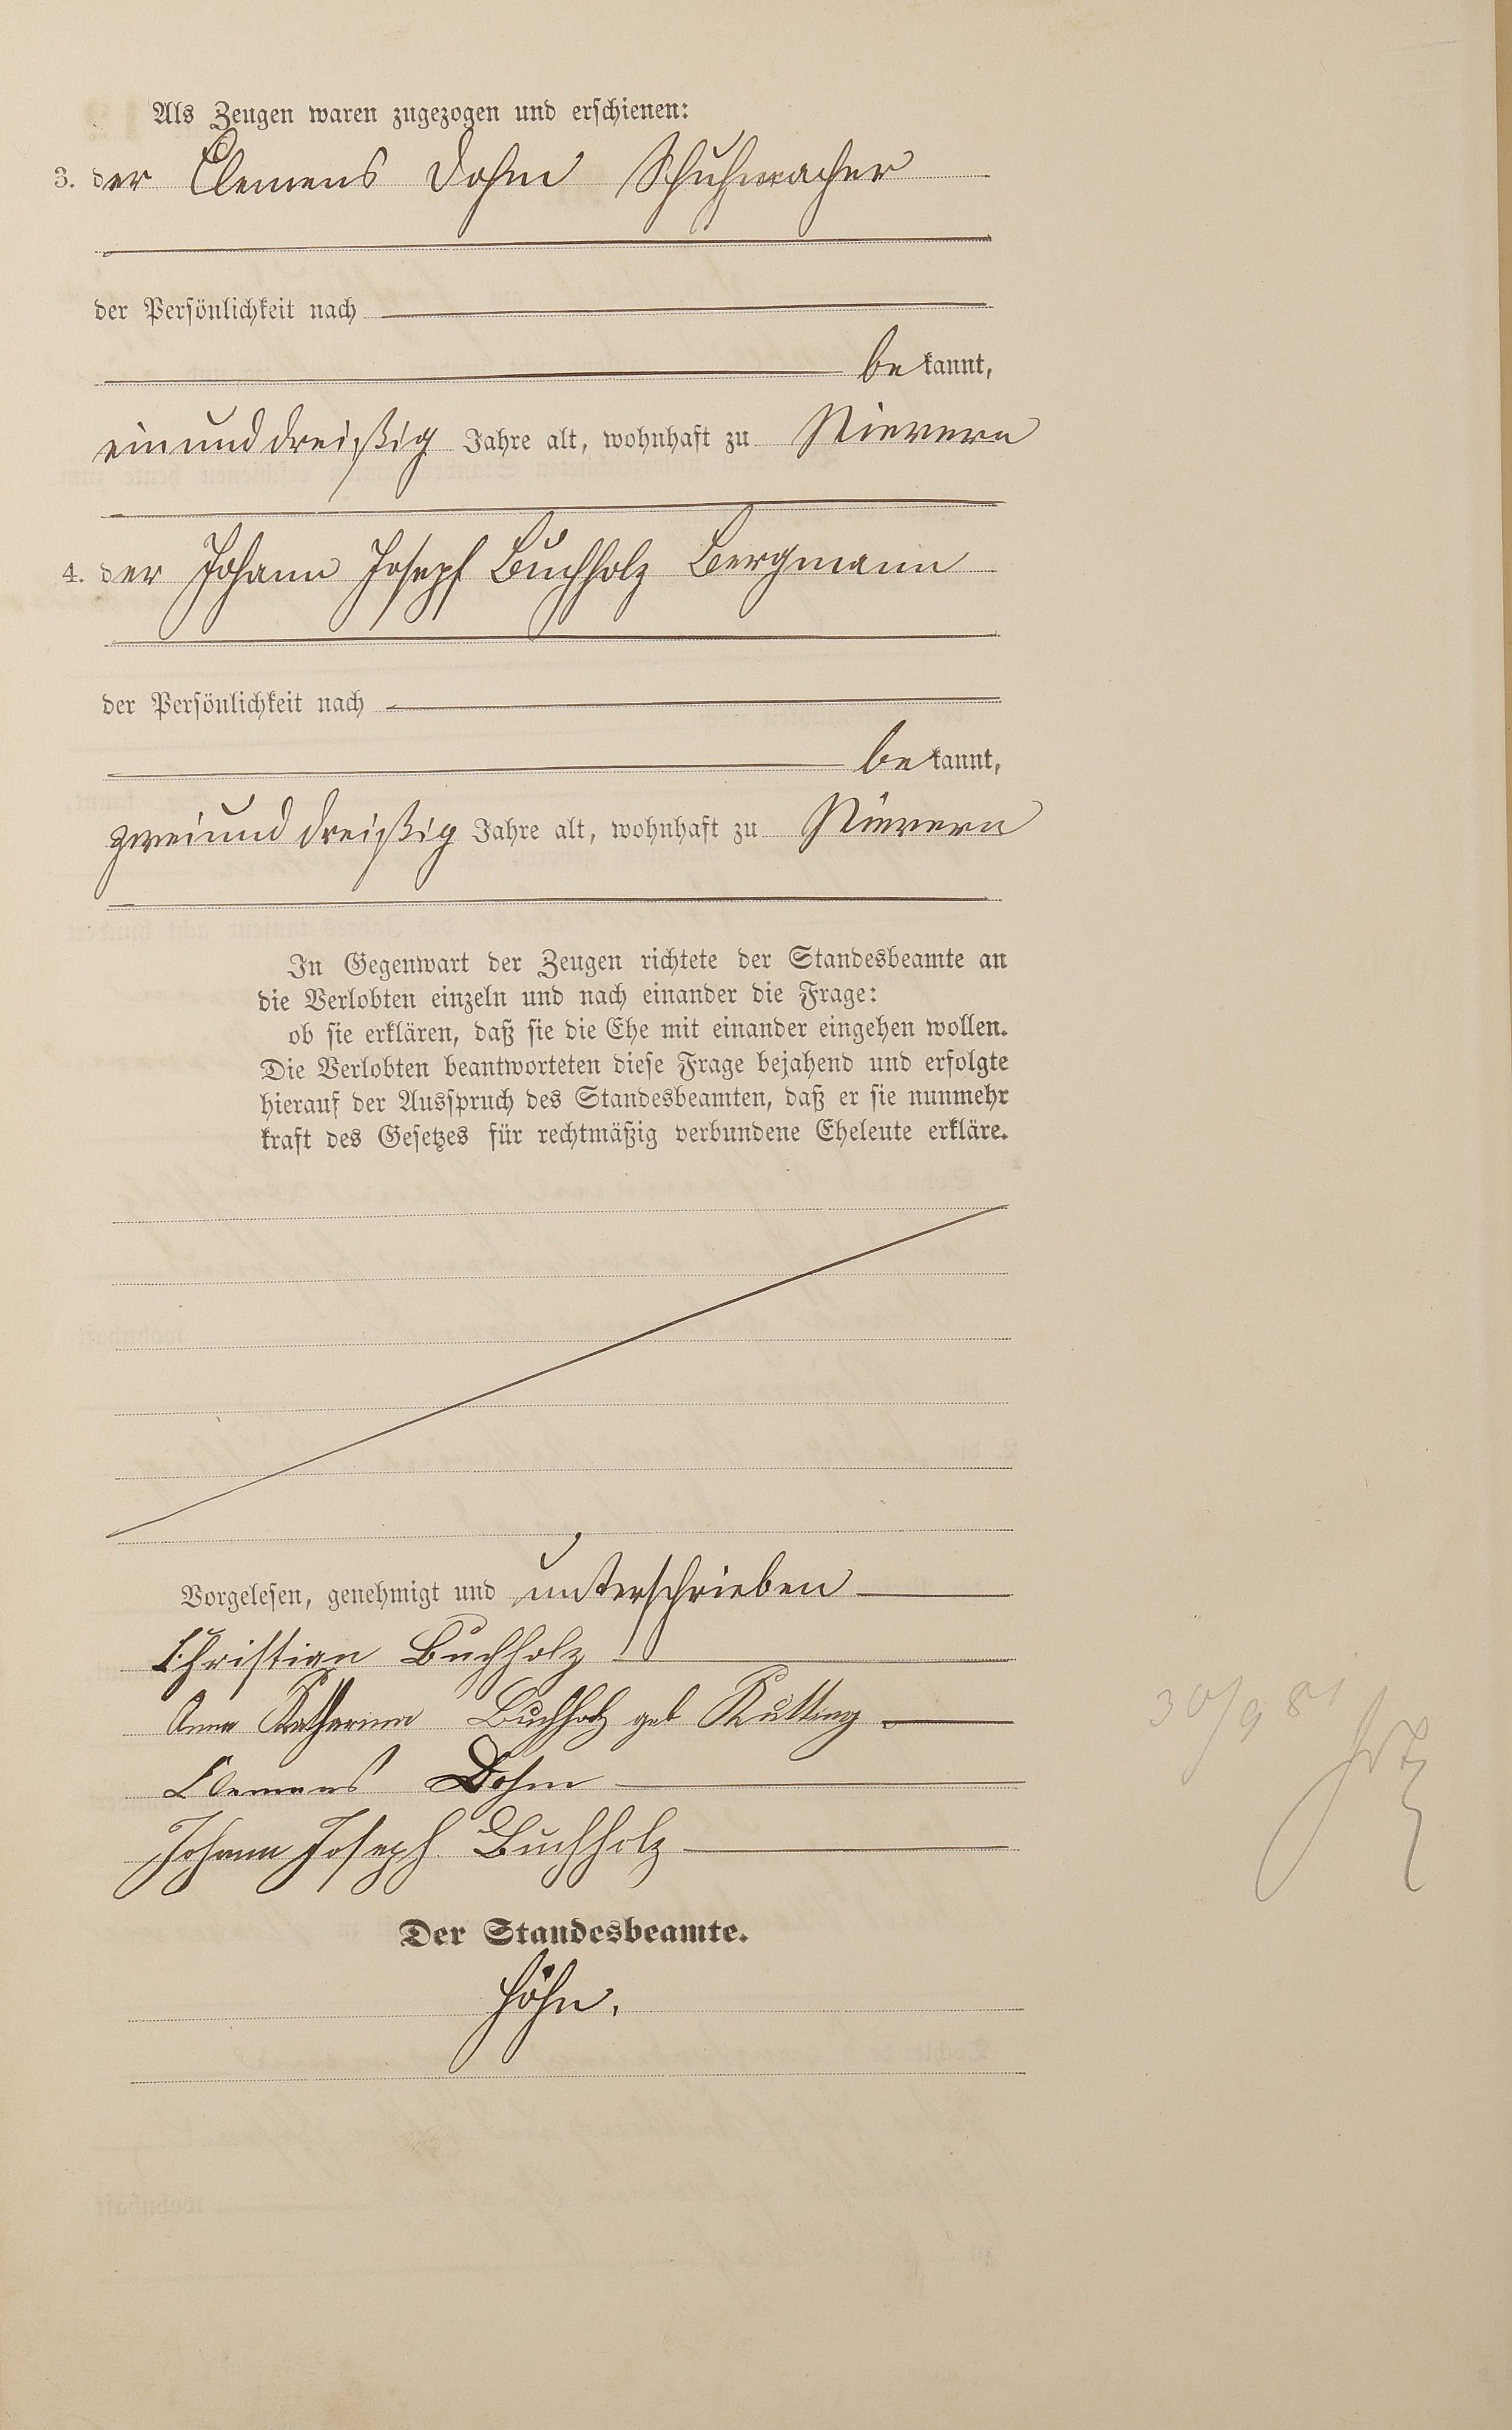 Als Zeugen waren zugezogen und erschienen:
3. der Clemens Dohm Schuhmacher
der Persönlichkeit nach
bekannt,
einunddreißig Jahre alt, wohnhaft zu Nievern
4. der Johann Josepf Buchholz Bergmann
der Persönlichkeit nach
bekannt,
zweiunddreißig Jahre alt, wohnhaft zu Nievern
In Gegenwart der Zeugen richtete der Standesbeamte an
die Verlobten einzeln und nach einander die Frage:
ob sie erklären, daß sie die Ehe mit einander eingehen wollen.
Die Verlobten beantworteten diese Frage bejahend und erfolgte
hierauf der Ausspruch des Standesbeamten, daß er sie nunmehr
kraft des Gesetzes für rechtmäßig verbundene Eheleute erkläre.
Vorgelesen, genehmigt und unterschrieben
Christian Buchholz
Anna Katharina Buchholz geb
Clemens Dohm
Johann Joseph Buchholz
Der Standesbeamte.
Höhn.
30/9 81